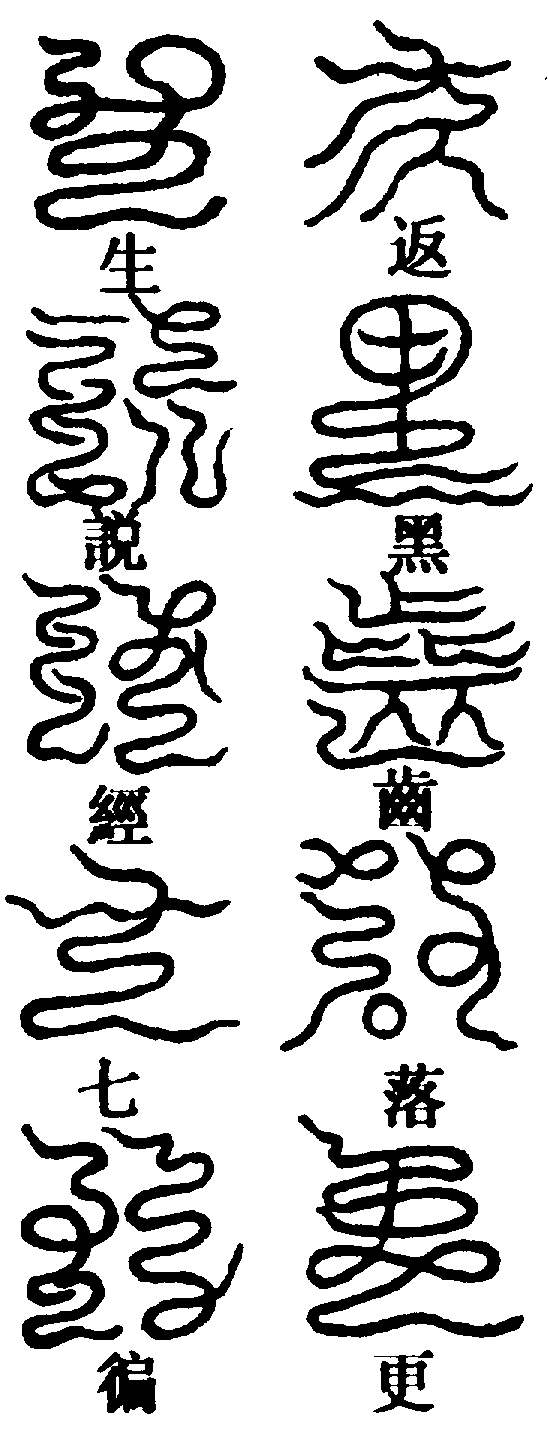 返黑齒落更
生説經七徧